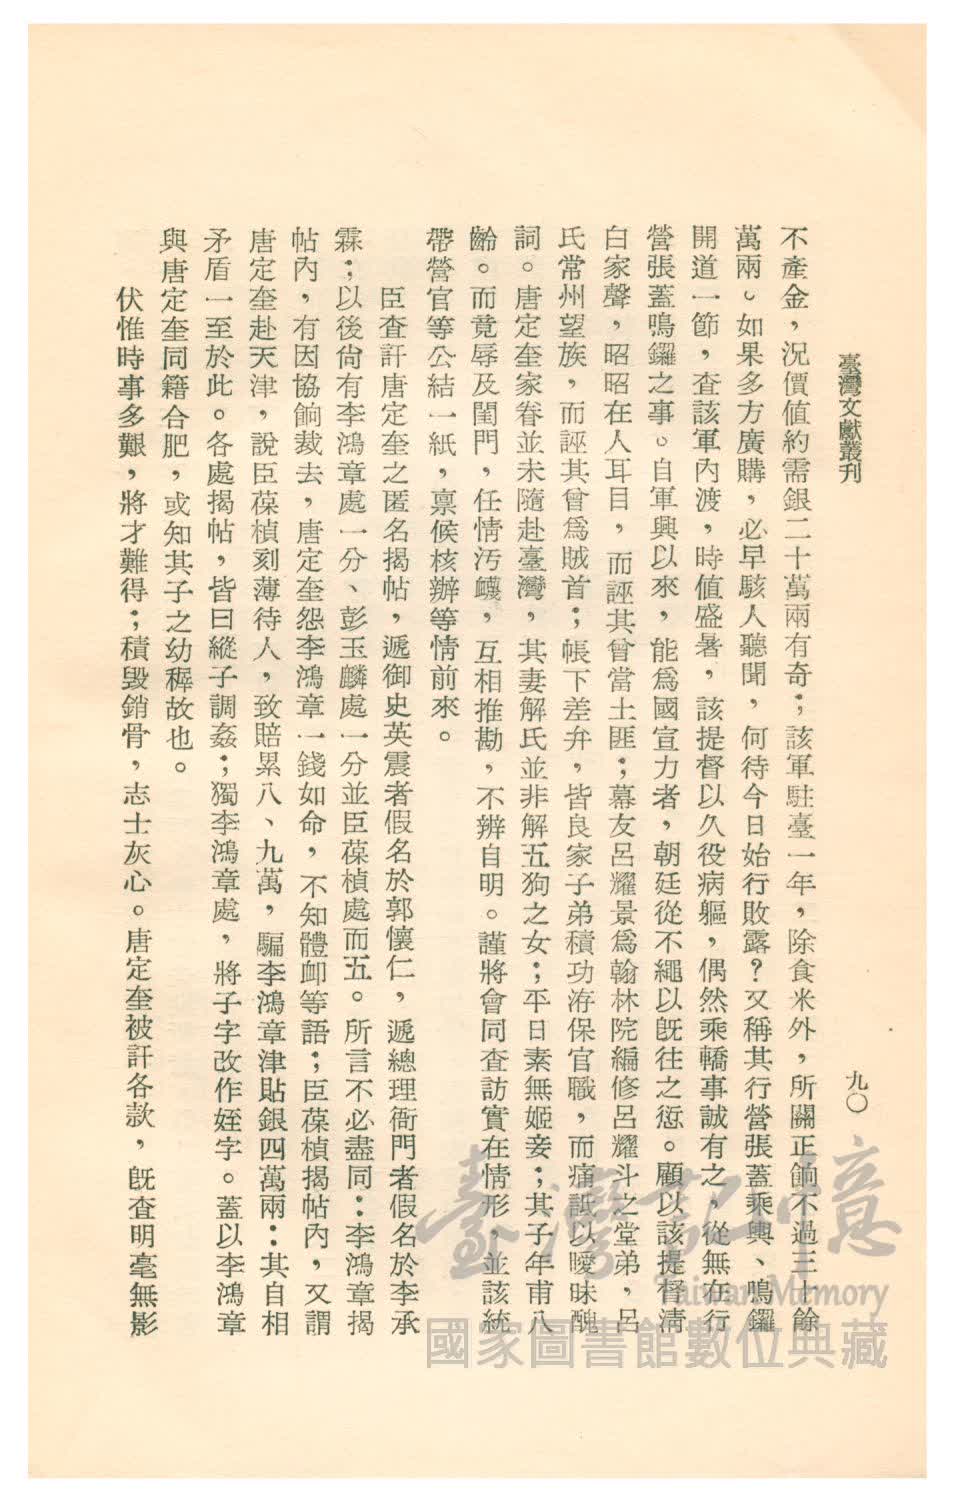 臺灣文獻叢刊
九〇
不產金，況價值約需銀二十萬兩有奇；該軍駐臺一年，除食米外，所關正餉不過三十餘
萬兩。如果多方廣購，必早駭人聽聞，何待今日始行敗露？又稱其行營張蓋乘輿、鳴鑼
開道一節，查該軍內渡，時值盛暑，該提督以久役病軀，偶然乘轎事誠有之，從無在行
營張蓋鳴鑼之事。自軍興以來，能為國宣力者，朝廷從不繩以既往之愆。顧以該提督清
白家聲，昭昭在人耳目，而誣其曾當土匪；幕友呂耀景為翰林院編修呂耀斗之堂弟，呂
氏常州望族，而誣其曾為賊首；帳下差弁，皆良家子弟積功洊保官職，而痛詆以曖昧醜
詞。唐定奎家眷並未隨赴臺灣，其妻解氏並非解五狗之女；平日素無姬妾；其子年甫八
齡。而竟辱及閨門，任情汚衊，互相推勘，不辨自明。謹將會同查訪實在情形，並該統
帶營官等公結一紙，稟候核辦等情前來。
臣查訐唐定奎之匿名揭帖，遞御史英震者假名於郭懷仁，遞總理衙門者假名於李承
霖；以後尙有李鴻章處一分、彭玉麟處一分並臣葆楨處而五。所言不必盡同：李鴻章揭
帖內，有因協餉裁去，唐定奎怨李鴻章一錢如命，不知體卹等語；臣葆楨揭帖內，又謂
唐定奎赴天津，說臣葆楨刻薄待人，致賠累八、九萬，騙李鴻章津貼銀四萬兩：其自相
矛盾一至於此。各處揭帖，皆曰縱子調姦；獨李鴻章處，將子字改作姪字。蓋以李鴻章
與唐定奎同籍合肥，或知其子之幼穉故也。
伏惟時事多艱，將才難得；積毀銷骨，志士灰心。唐定奎被訐各款，旣查明毫無影
臺灣記憶
Taiwan Memory
國家圖書館數位典藏